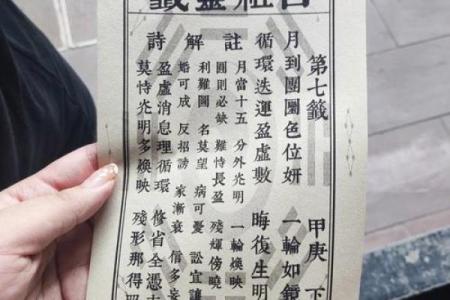 呂祖靈籤
第七籤 甲庚 下
月到團圓色位妍 一輪如鏡
循環迭運盈虛數 晦復生明
註解
月當十五 分外光明 一輪煥映
圓則必缺 難恃長盈 殘輝傍曉
利難圖 名莫望 病可憂 訟宜讓
婚可成 反招謗 家漸衰 信多妄
詩
盈虛消息理循環 修省全憑
莫恃光明多煥映 殘形那得